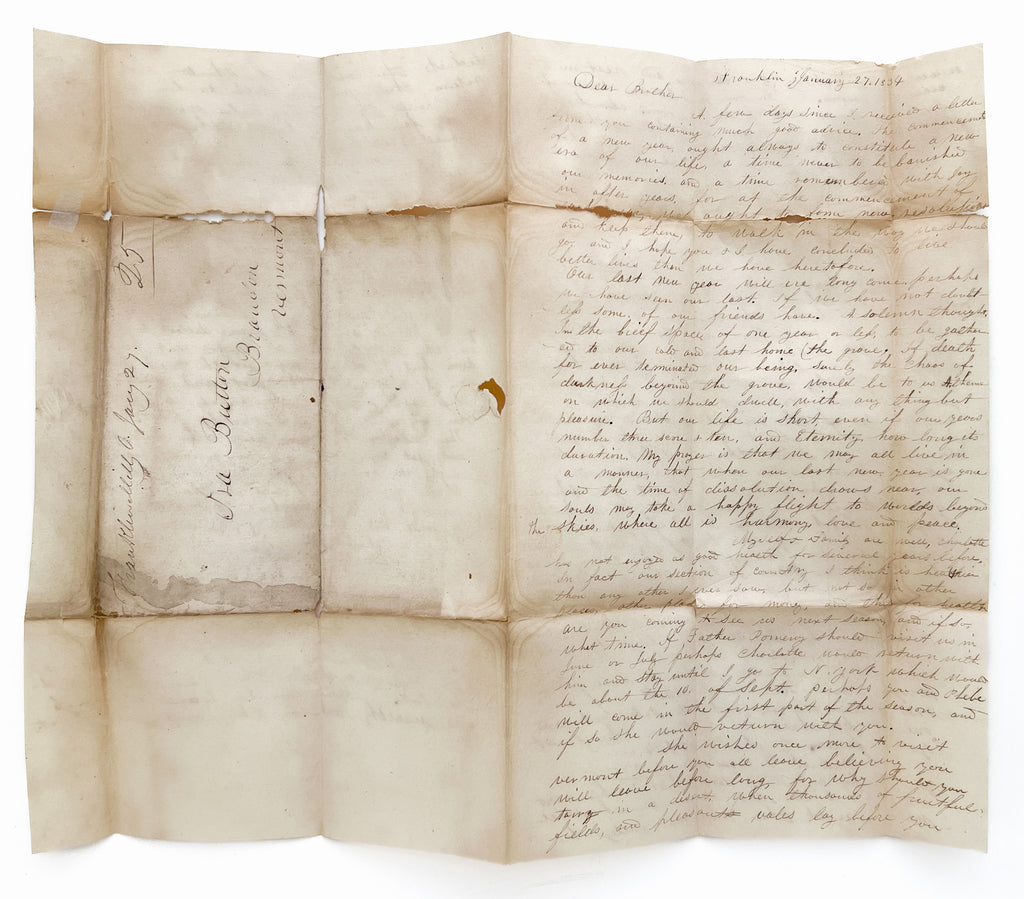 25
Franklinville N. Jany 27.
Ira Button
Brandon
Vermont
Franklin January 27. 1834
Dear Brother
A few days since I received a letter
from you containing much good advice. The commencement
of a new year, ought always to constitute a new
era of our life, a time never to be banished
our memories, and a time remembered with joy
in after years, for at the commencement of
ought to form new resolutions
and keep them, to walk in the way we should
go, and I hope you & I have concluded to live
better lives than we have heretofore.
Our last new year will ere long come, perhaps
we have seen our last. If we have not doubt-
less some of our friends have. A solemn thought,
In the brief space of one year or less, to be gather
ed to our cold and last home (the grave. If death
for ever terminated our being, surely the chaos of
darkness beyond the grave, would be to us a theme
on which we should dwell, with any thing but
pleasure. But our life is short, even if our years
number three score & ten, and Eternity how long its
duration. My prayer is that we may all live in
a manner, that when our last new year is gone
and the time of dissolution draws near, our
souls may take a happy flight to worlds beyond
the skies, where all is harmony love and peace.
Myself & Family are well, Charlotte
has not enjoyed as good health for several years before,
In fact our section of country I think is healthier
than any other I ever saw, but not so in other
places, other for money, and this for health
are you coming to see us next season, and if so,
what time. If Father Pomeroy should visit us in
June or July perhaps Charlotte would return with
him and stay until I go to N. York which would
be about the 10. of Sept. perhaps you and Phebe
will come in the first part of the season, and
if so she would return with you.
She wishes once more to visit
vermont before you all leave, believing you
will leave before long, for why should you
tarry in a desert, when thousands of fruitful
fields, and pleasant vales lay before you